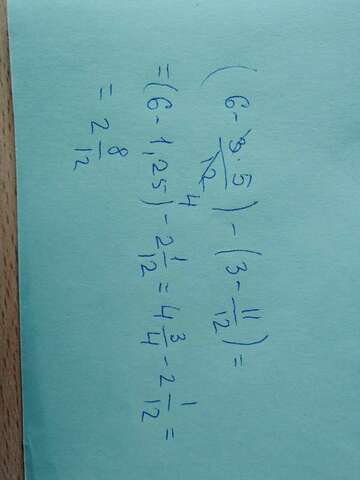 (6 - 3·5/12 4) - (3 - 11/12) =
= (6 - 1,25) - 2 1/12 = 4 3/4 - 2 1/12 =
= 2 8/12